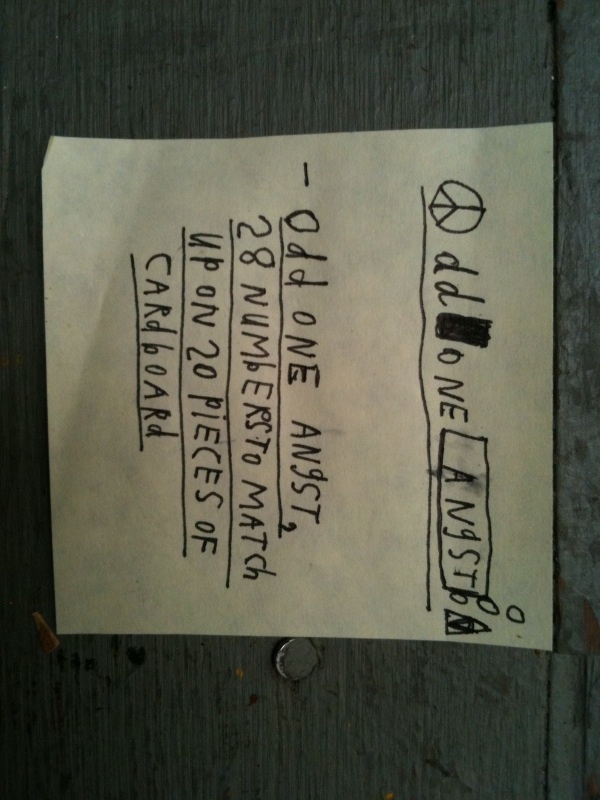 ☮dd ONE ANgST
- Odd ONE ANgST,
28 NUMbERS TO MATCh
UP ON 20 PiECES OF
CARdbOARd